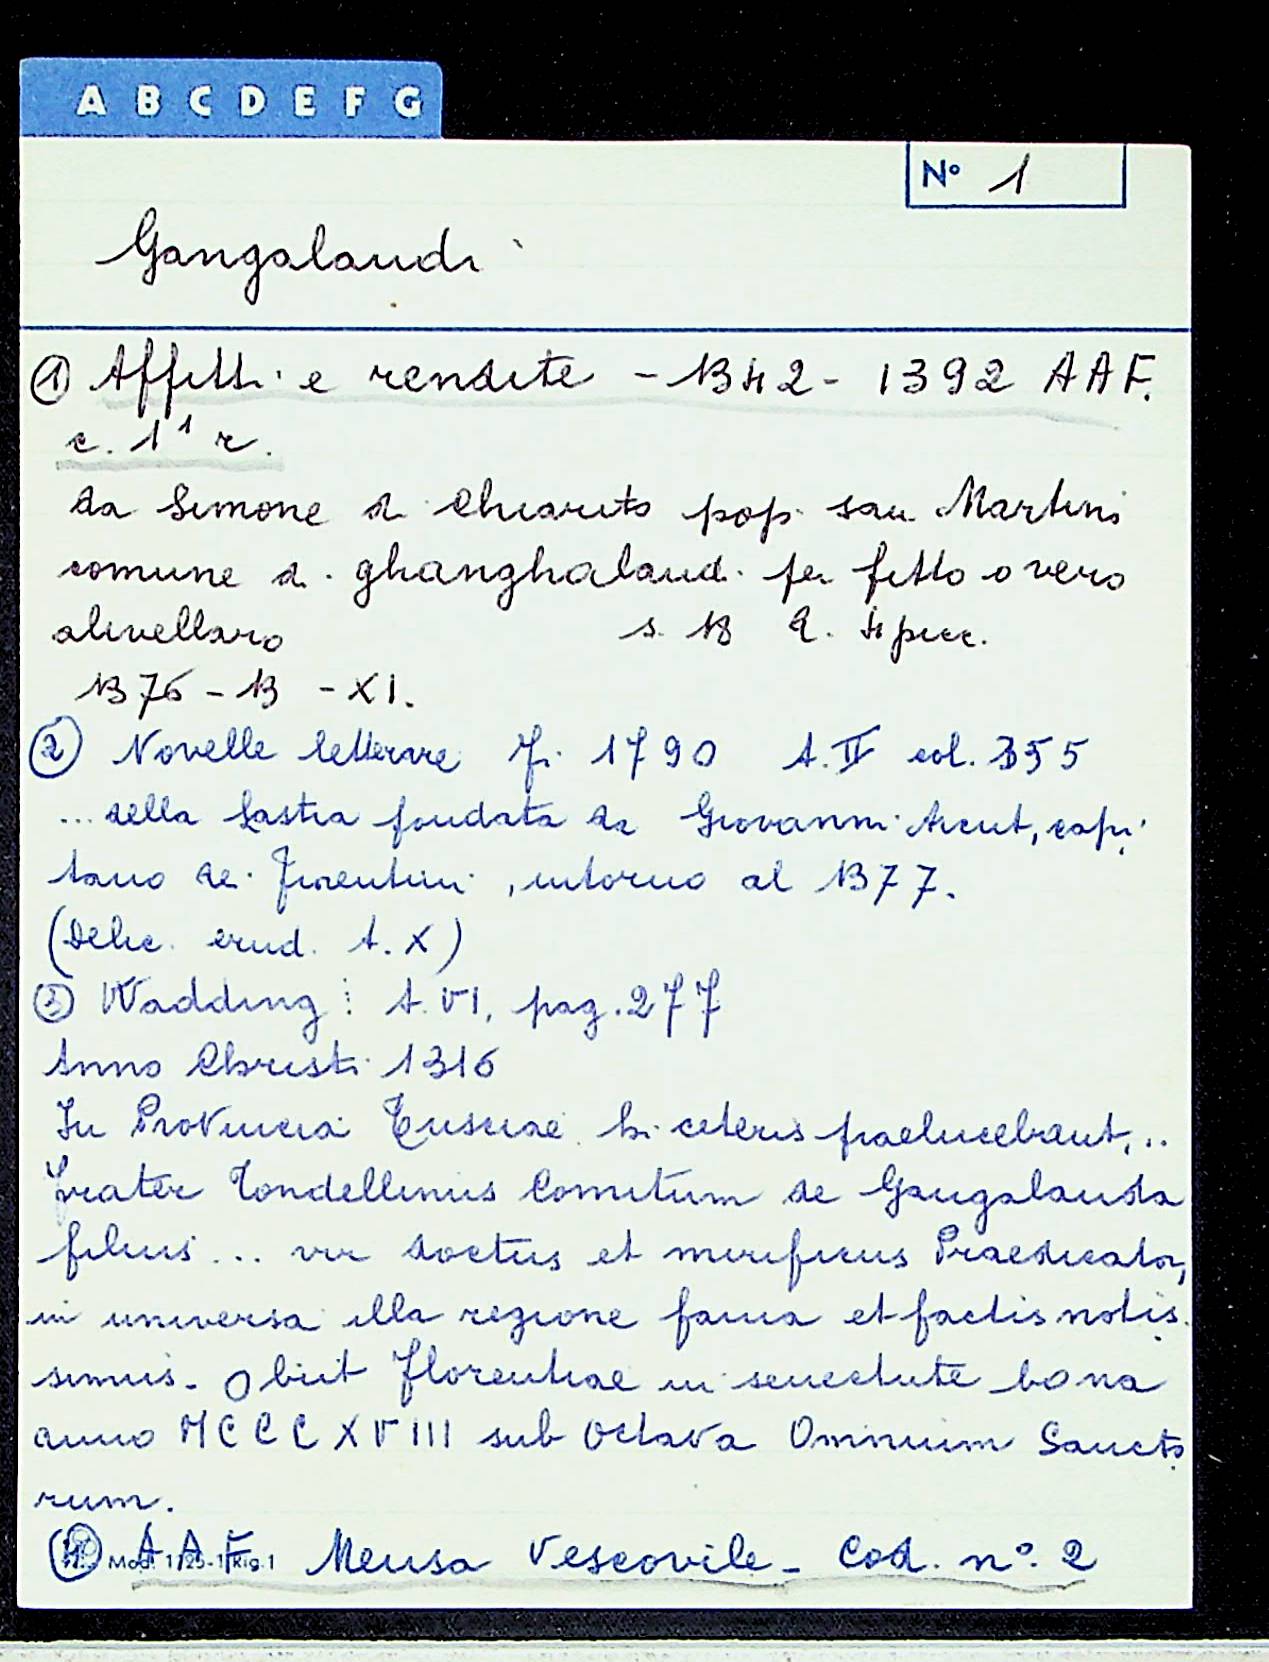 A B C D E F G
Nº 1
Gangalandi
① Affitti e rendite - 1342 - 1392 AAF.
c. 11 r.
da Simone di Chiarito pop. san Martino
comune di ghanghaland. per fitto overo
alivellaro s. 13 d. 4 picc.
1376 - 13 - XI.
② Novelle letterarie Fi. 1790 t. II col. 355
... della Lastra fondata da Giovanni Acut, capi
tano dei Fiorentini, intorno al 1377.
(Delic. erud. t. X)
③ Wadding: t. VI, pag. 277
Anno Christi 1316
In Provincia Tusciae hi ceteris praelucebant,..
Frater Tondellinus Comitum de Gangalanda
filius... vir doctus et mirificus Praedicator,
in universa illa regione fama et factis notis
simus. Obiit Florentiae in senectute bona
anno MCCCXVIII sub octava Omnium Sancto
rum.
④ AAF Mensa Vescovile - Cod. nº 2